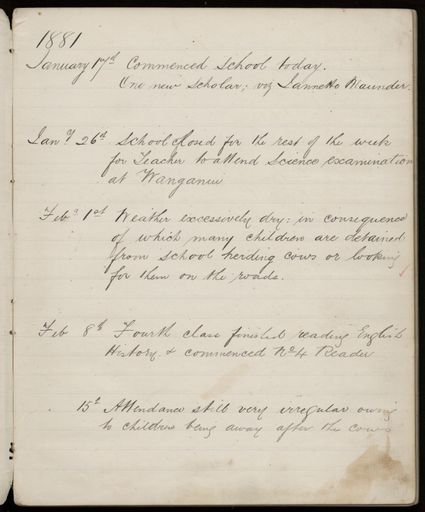 1881
January 17th Commenced School today.
One new Scholar; viz Jannetto Maunder.
Jany 26th School closed for the rest of the week
for Teacher to attend Science examination
at Wanganui
Feby 1st Weather excessively dry: in consequence
of which many children are detained
from school herding cows or looking
for them on the roads.
Feb 8th Fourth class finished reading English
History & commenced No 4 Reader
15th Attendance still very irregular owing
to children being away after the cows